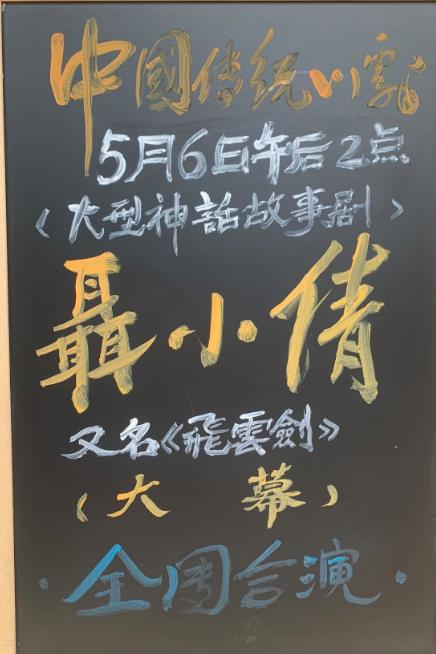 中國传统川劇
5月6日午后2点
〈大型神話故事剧〉
聶·小·倩
又名《飛雲劍》
(大 幕)
·全團合演·